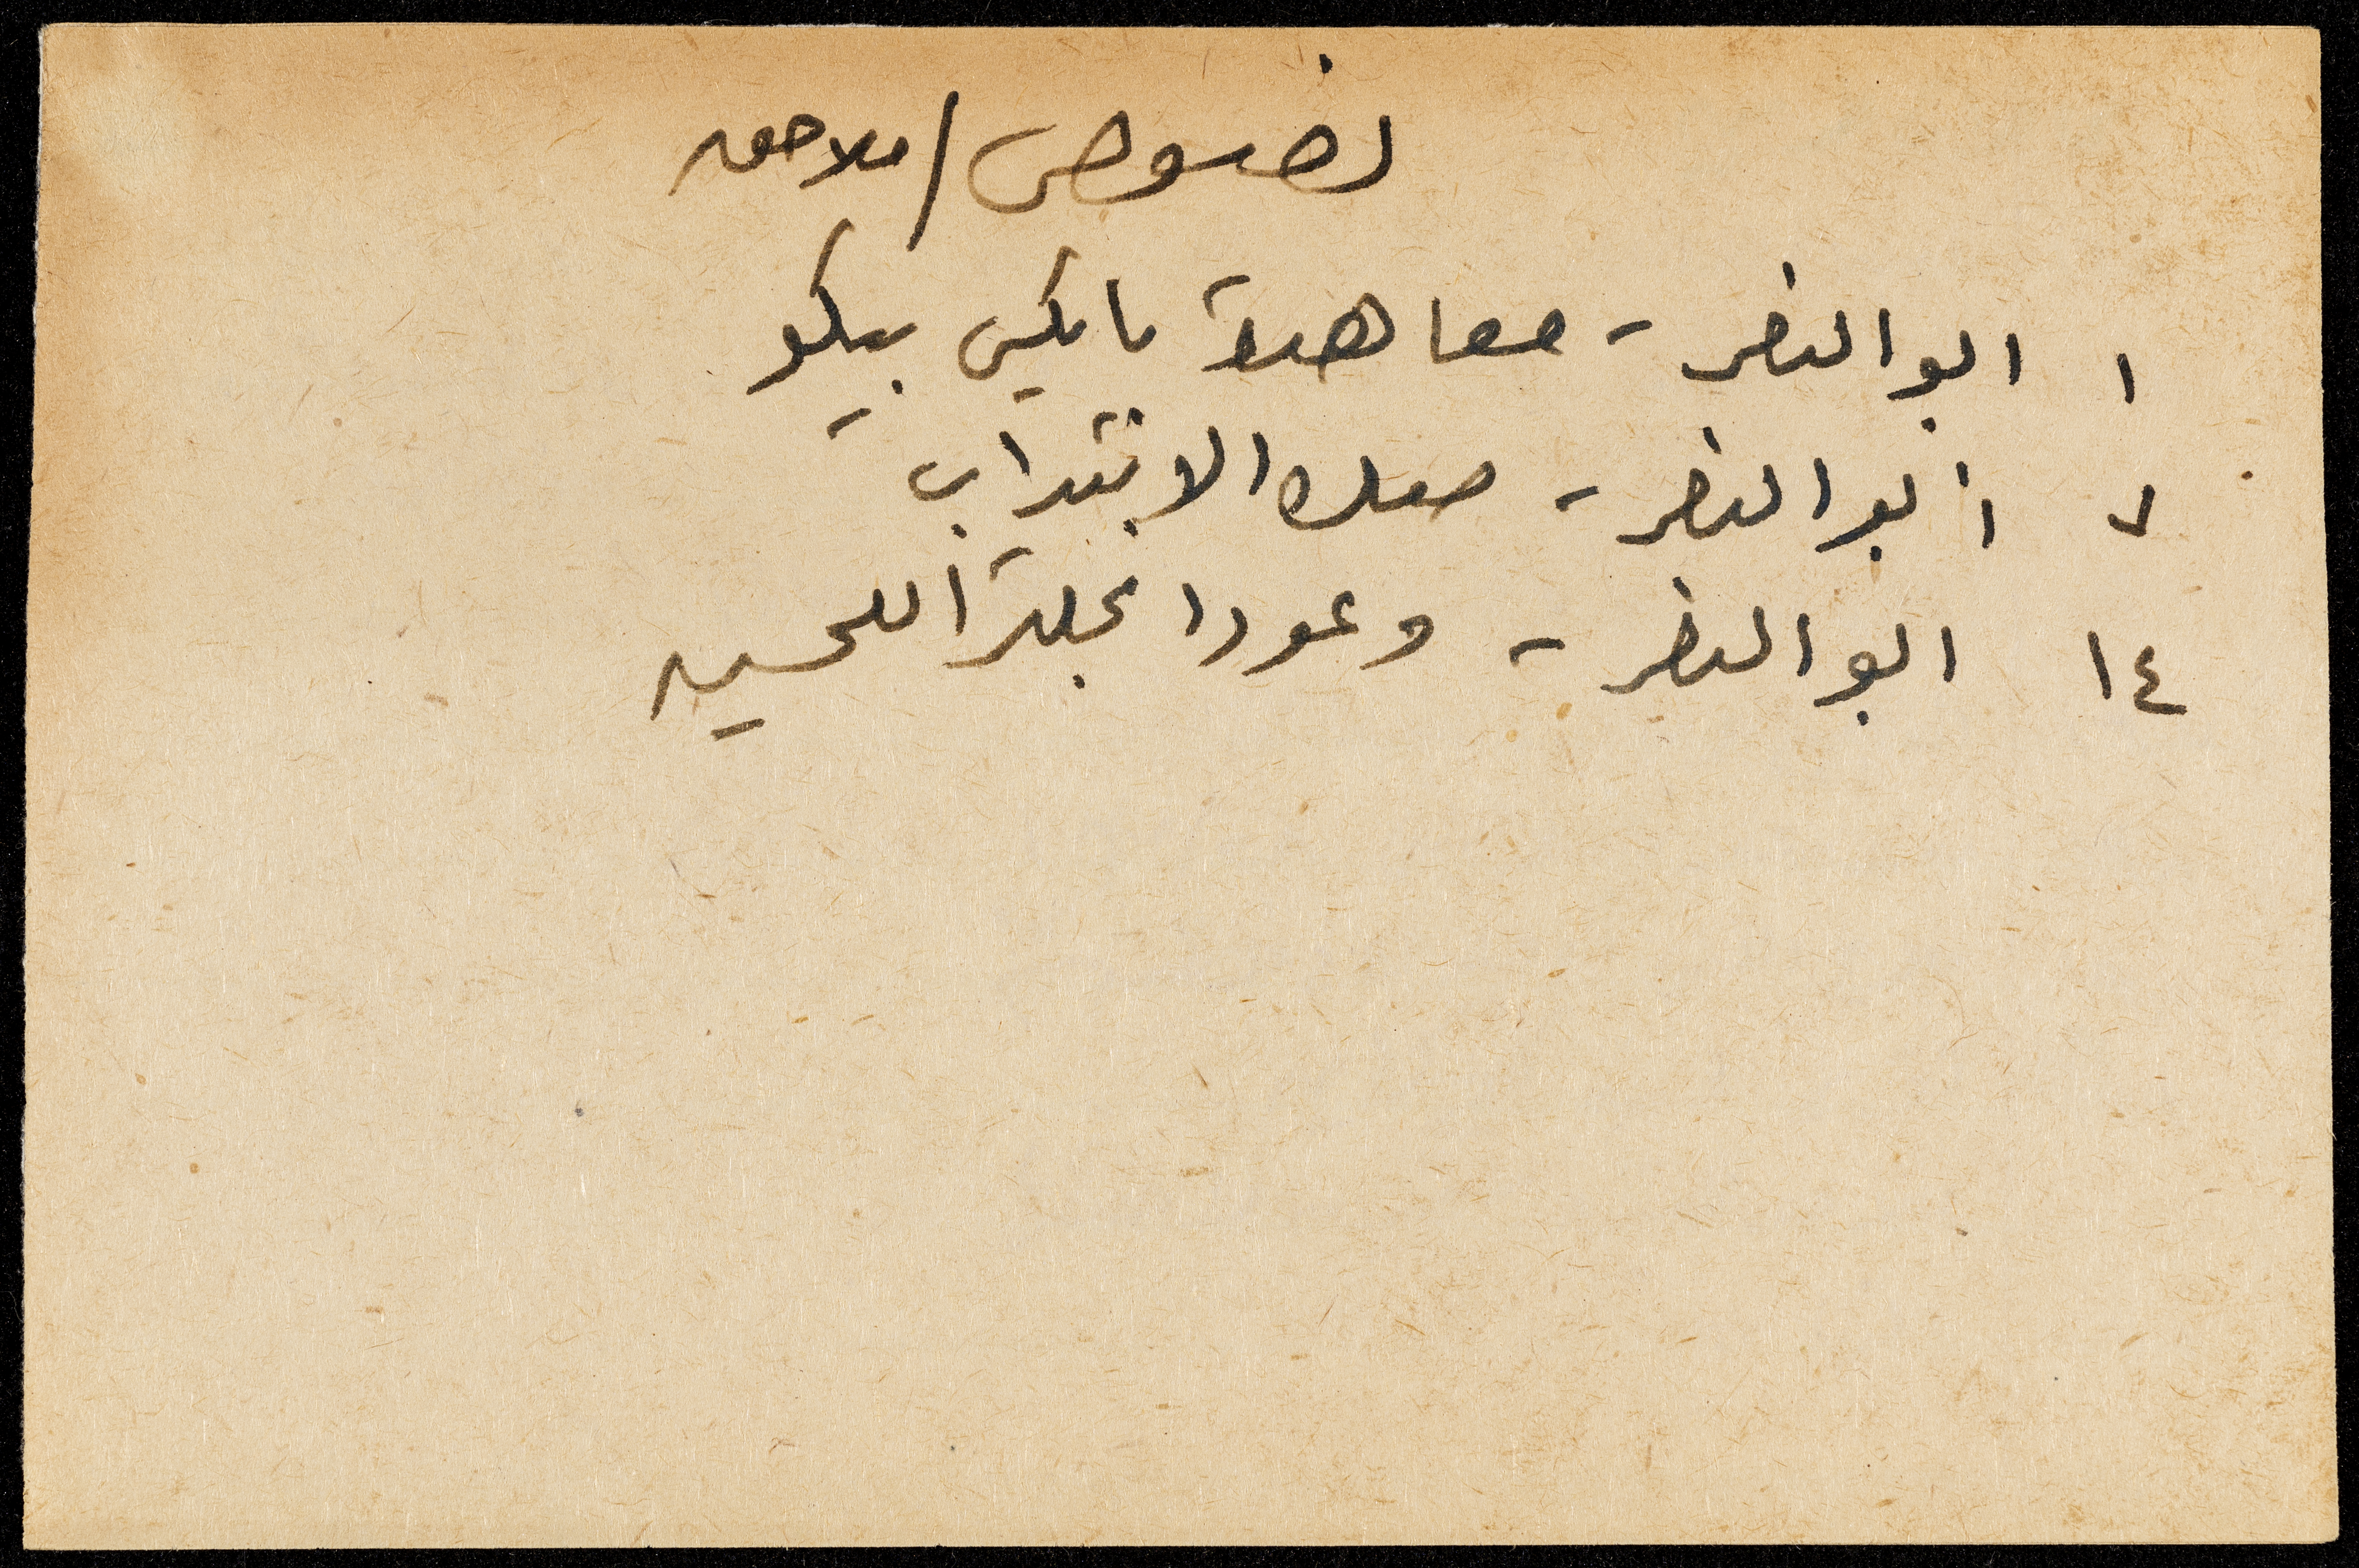 نصوص/ملاحق
١ ابو النصر - معاهدة سايكس بيكو
٧ ابو النصر - صك الانتداب
١٤ ابو النصر - وعود انجلترا للحسين